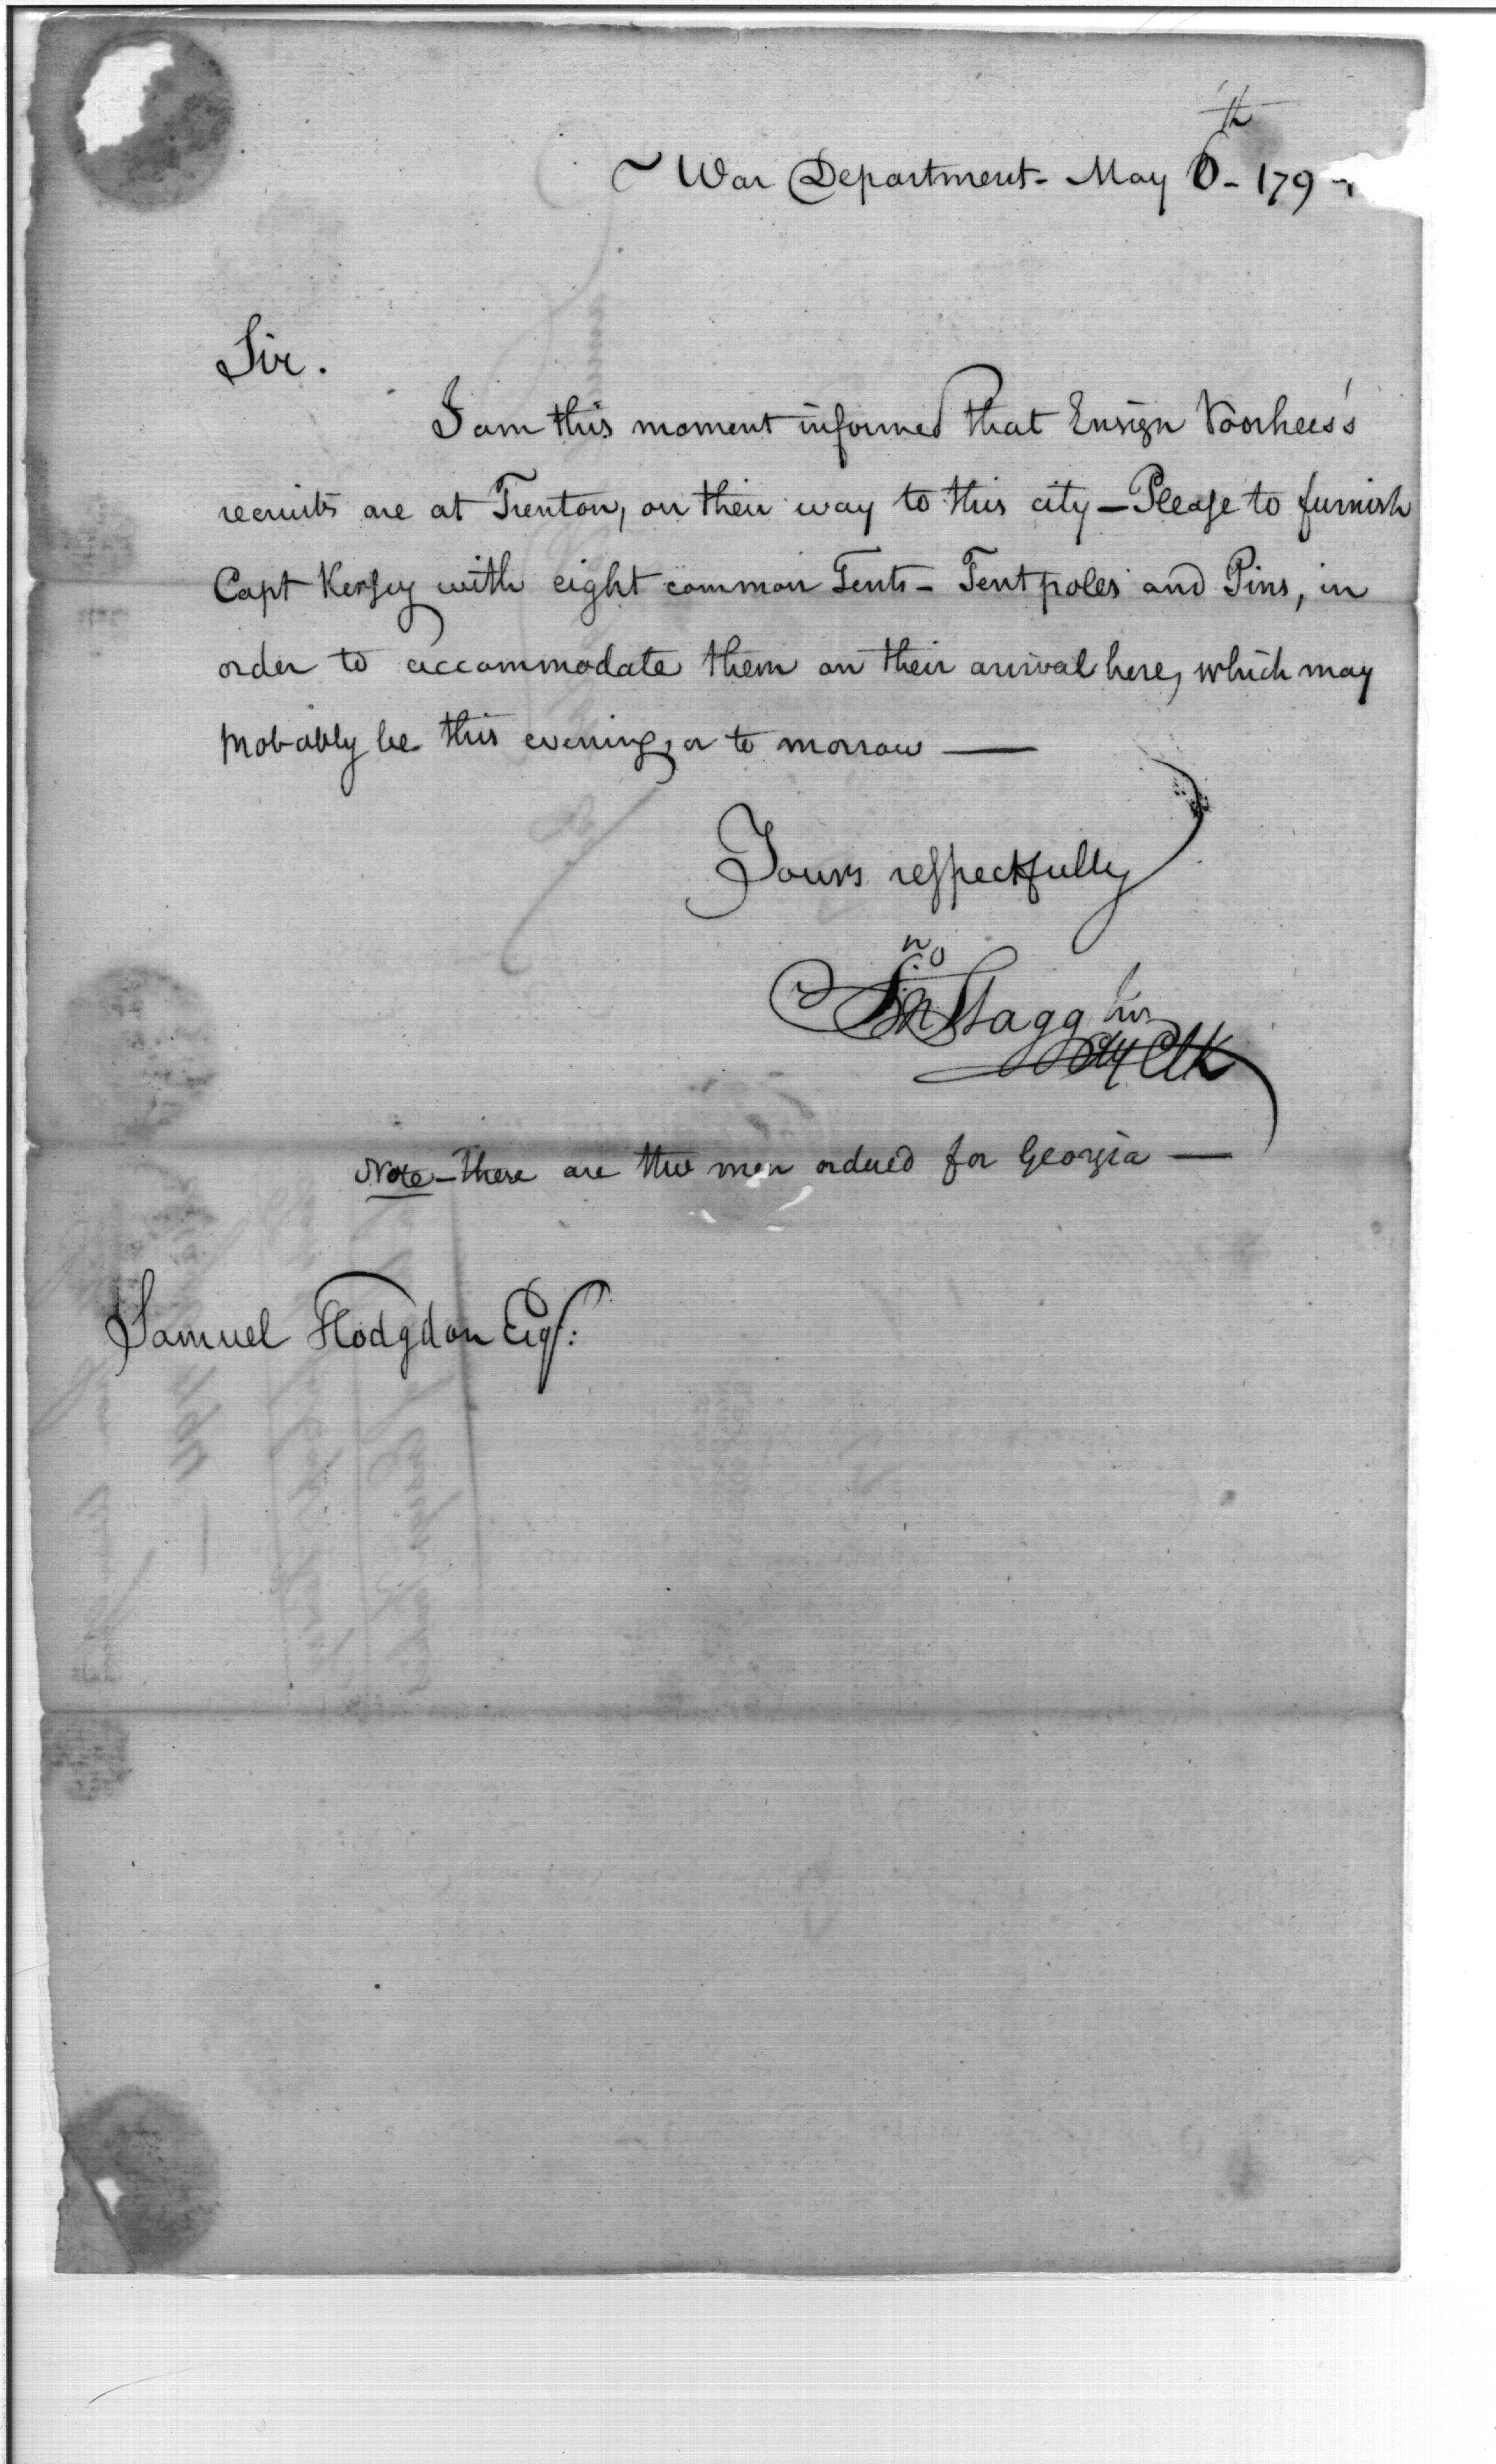 War Department - May 6th - 179
Sir.
I am this moment informed that Ensign Voorhees's
recruits are at Trenton, on their way to this city — Please to furnish
Capt Kersey with eight common Tents - Tent poles and Pins, in
order to accommodate them on their arrival here, which may
probably be this evening, or to morrow —
Yours respectfully
Jno Stagg Jur
Clk
Note - these are the men ordered for Georgia —
Samuel Hodgdon Esqr: